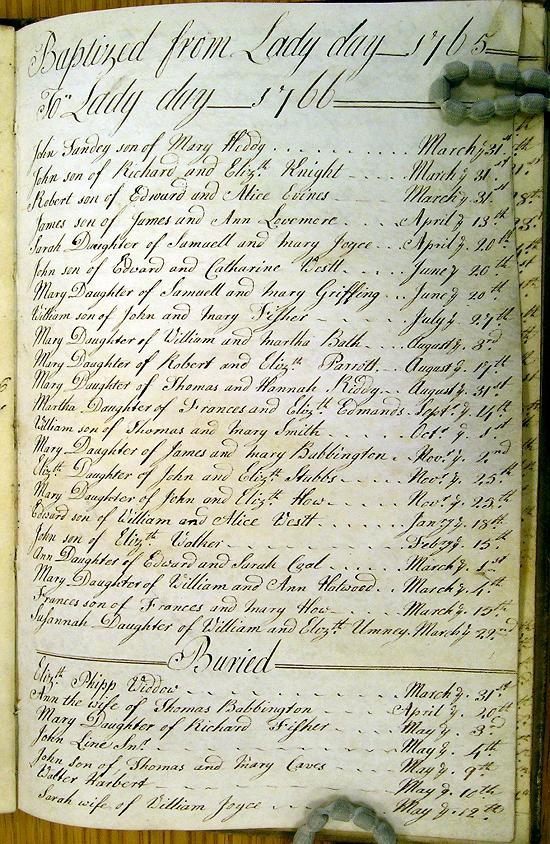 Baptized from Lady day 1765
To Lady day 1766
John Sandey son of Mary Hiddy March ye 31st
John son of Richard and Elizth Knight March ye 31st
Robert son of Edward and Alice Evines March ye 31st
James son of James and Ann Livemore April ye 13th
Sarah Daughter of Samuell and Mary Joyce April ye 20th
John son of Edward and Catharine Westl June ye 20th
Mary Daughter of Samuell and Mary Griffing June ye 20th
William son of John and Mary Fisher July ye 27th
Mary Daughter of William and Martha Bath August ye 3rd
Mary Daughter of Robert and Elizth Parrott August ye 17th
Mary Daughter of Thomas and Hannah Kiddy August ye 31st
Martha Daughter of Frances and Elizth Edmands Septr ye 14th
William son of Thomas and Mary Smith Octr ye 1st
Mary Daughter of James and Mary Bubbington Novr ye 2nd
Elizth Daughter of John and Elizth Stubbs Novr ye 25th
Mary Daughter of John and Elizth How Novr ye 25th
Edward son of William and Alice Westl Jany ye 18th
John son of Elizth Walker Feby ye 15th
Ann Daughter of Edward and Sarah Cool March ye 1st
Mary Daughter of William and Ann Halwood March ye 4th
Frances son of Frances and Mary How March ye 15th
Susannah Daughter of William and Elizth Umney March ye 22nd
Buried
Elizth Phipp Widdow March ye 31st
Ann the wife of Thomas Babbington April ye 20th
Mary Daughter of Richard Fisher May ye 3rd
John Line Snr May ye 4th
John son of Thomas and Mary Caves May ye 9th
Walter Harbert May ye 10th
Sarah wife of William Joyce May ye 12th